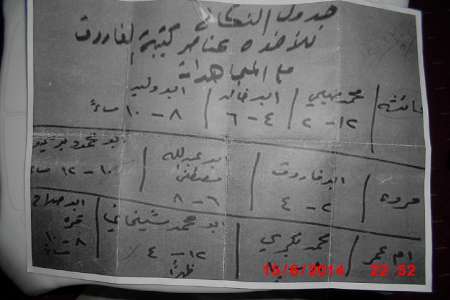 جدول النكاح
للأخوه عناصر كتيبة الفاروق
مع المجاهدات
عائشة / محمد | ابو خالد | ابو وليد
١٢ - ٢ / ٤ - ٦ / ٨ - ١٠ مساءً
مروه / ابو فاروق | ابو عبدالله مصطفى | ابو
٢ - ٤ / ٦ - ٨ / ١٠ - ١٢ مساءً
ام عمر / محمد بكري | ابو محمد شيشاني | ابو صلاح غزه
١٢ - ٤ ظهراً / ٨ - ١٠ مساءً
13/6/2014 22:52